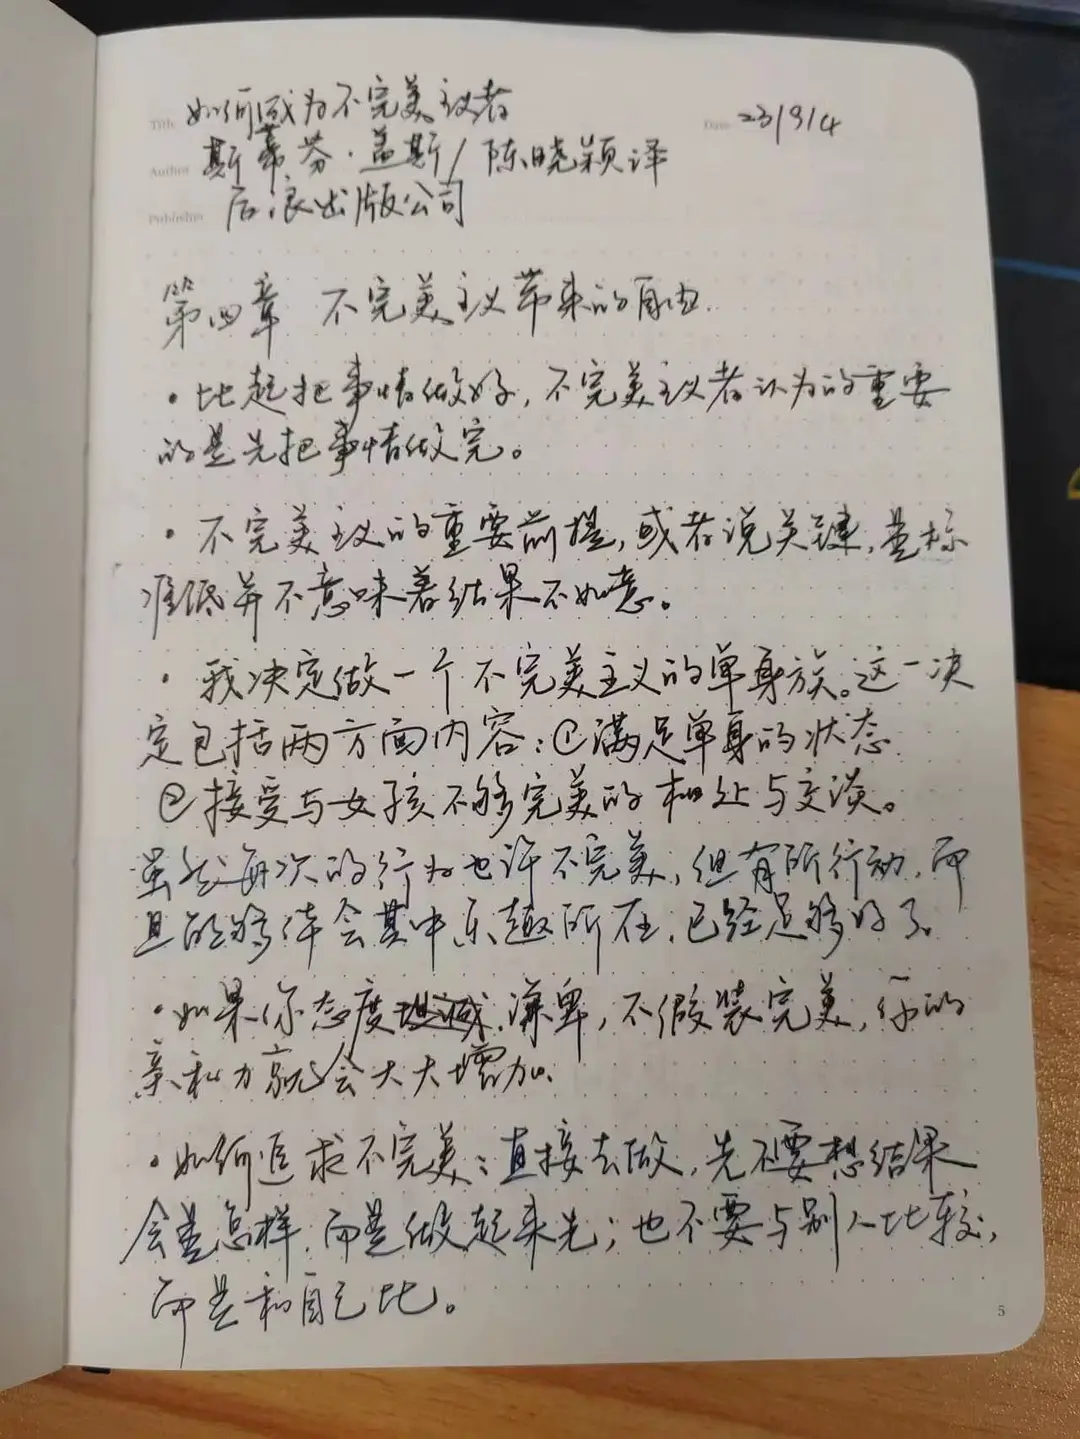 Title 如何成为不完美主义者
Date 23/9/4
Author 斯蒂芬·盖斯/陈晓颖译
Publisher 后浪出版公司
第四章 不完美主义带来的自由
·比起把事情做好,不完美主义者认为的重要
的是先把事情做完。
·不完美主义的重要前提,或者说关键,是标
准低并不意味着结果不如意。
·我决定做一个不完美主义的单身族。这一决
定包括两方面内容:①满足单身的状态
②接受与女孩不够完美的相处与交谈。
虽然每次的行为也许不完美,但有所行动,而
且能够体会其中乐趣所在,已经足够好了。
·如果你态度坦诚,谦卑,不假装完美,你的
亲和力就会大大增加。
·如何追求不完美:直接去做,先不要想结果
会是怎样,而是做起来先;也不要与别人比较,
而是和自己比。
5